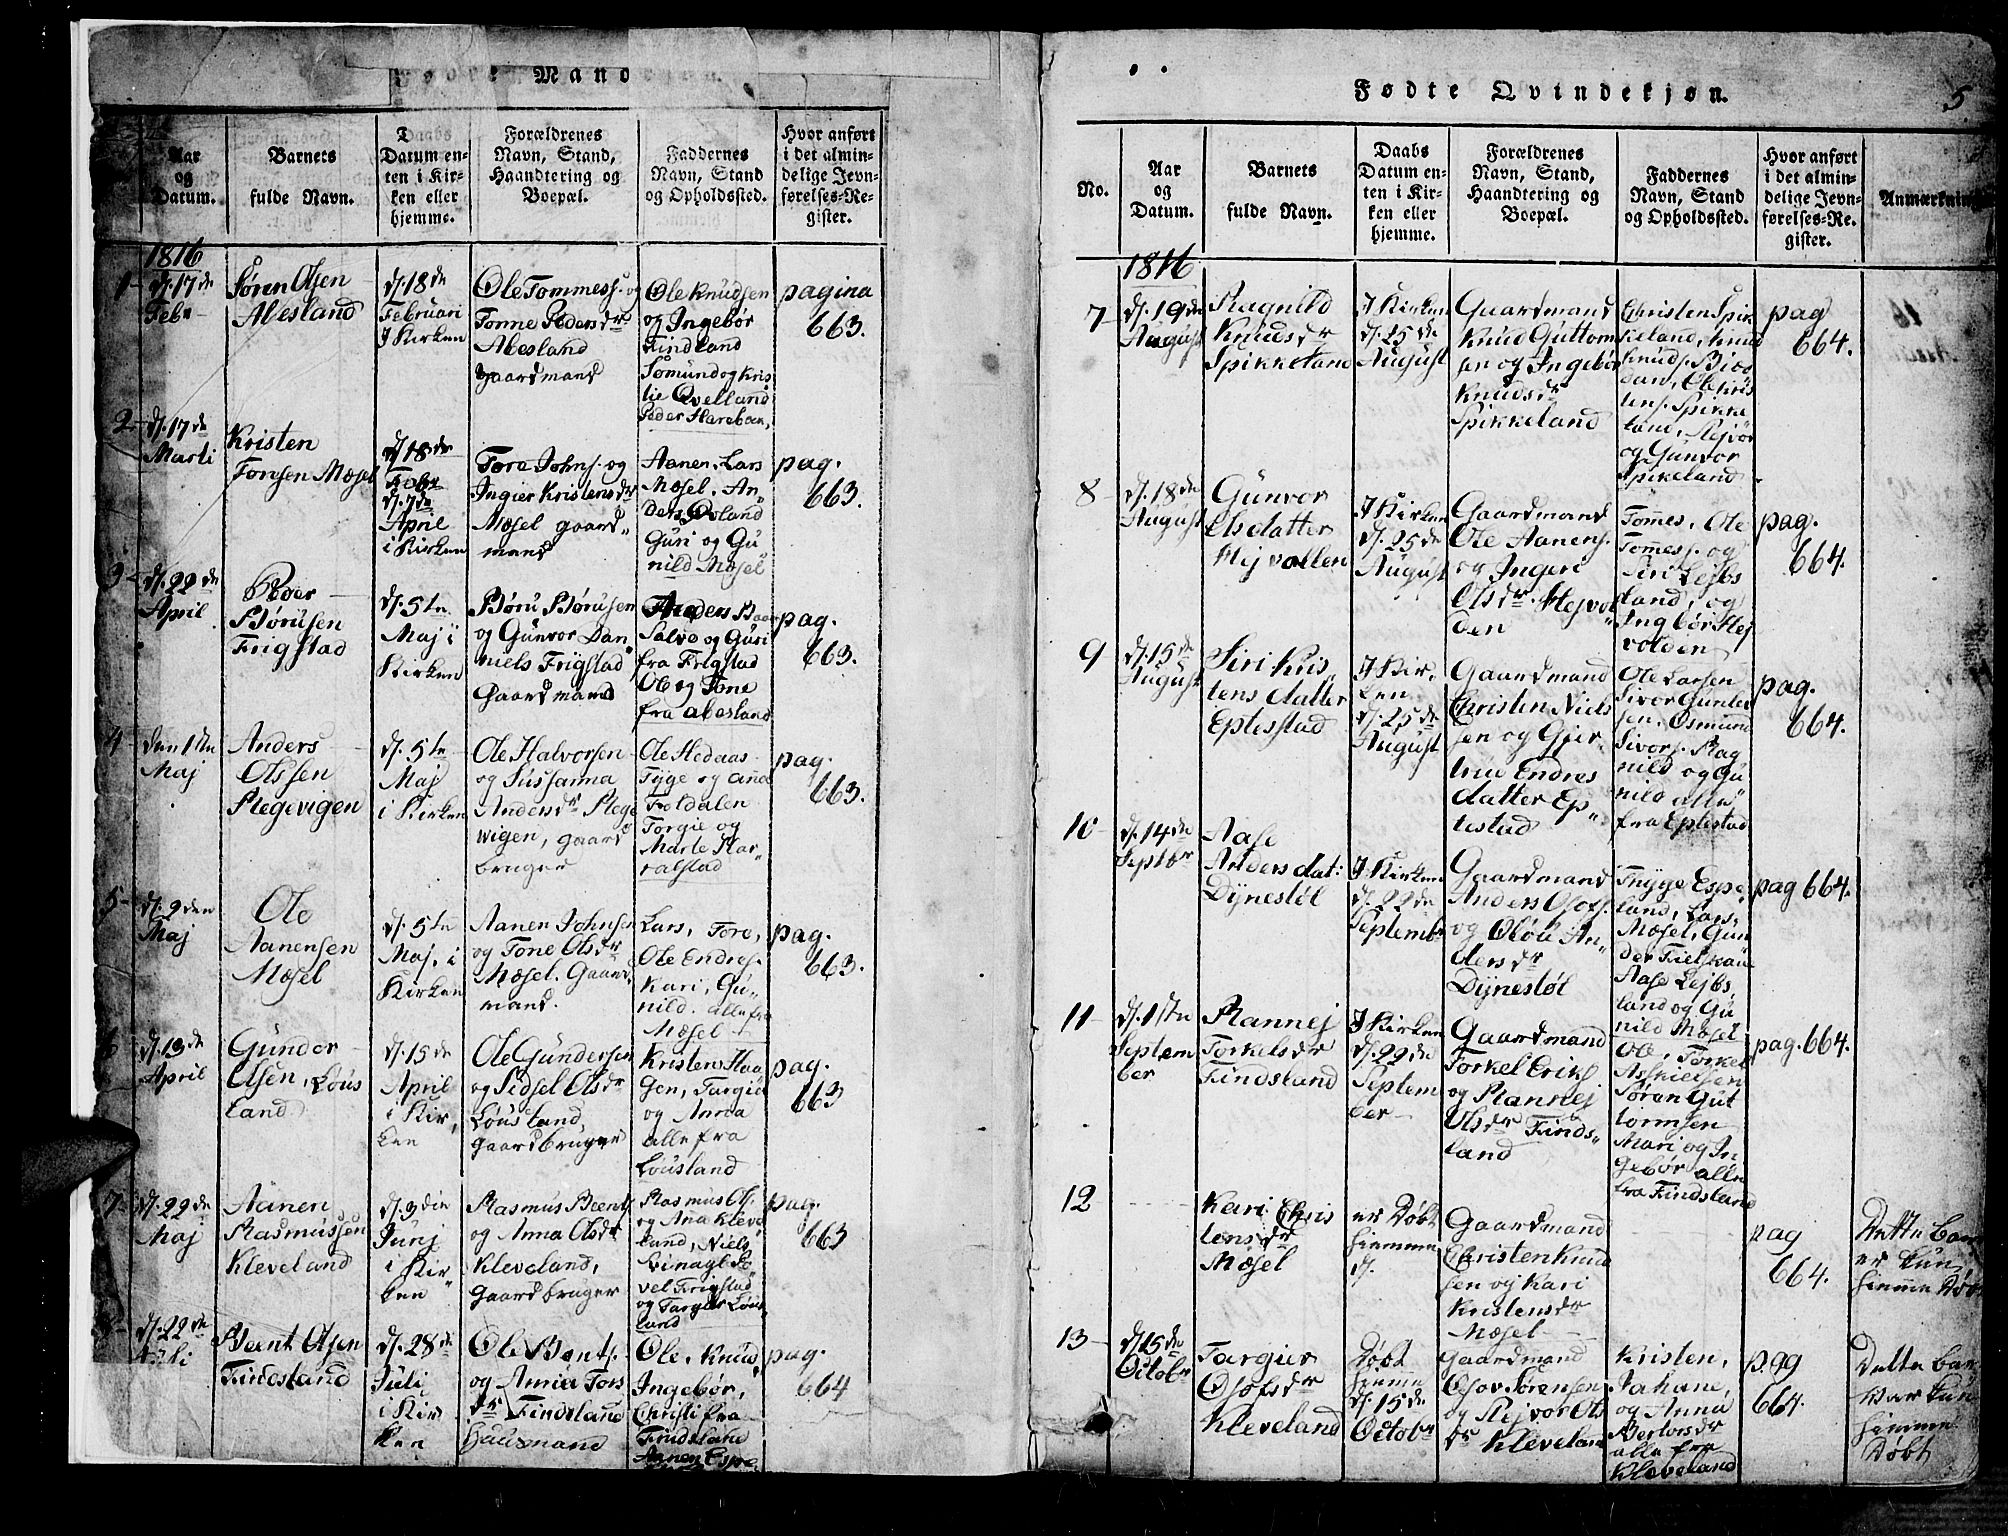 Mand
Aar
og
Datum.
Barnets
fulde Navn.
Daabs
Datum en-
ten i Kir-
ken eller
hjemme.
Forældrenes
Navn, Stand,
Haandtering og
Boepæl.
Faddernes
Navn, Stand
og Opholdssted.
Hvor anført
i det almin-
delige Jevn-
førelses-Re-
gister.
1816
1
d. 17de
Feb.
Søren Olsen
Abesland
d. 18de
Februari
I Kirken
Ole Tommess. og
Tonne Pedersdr
Abesland
gaardmand
Ole Knudsen
og Ingebør
Findland
Tomund og Kris
tie Qvelland
Peder Hareboen,
pagina
663.
2
d. 17de
Marti
Kristen
Torsen Mosel
d. 18de
Febr
d. 7de
April
i Kirken
Tore Johns. og
Ingier Kristensdr
Mosel gaard"
mand
Aanen, Lars
Mosel. An"
ders
Guri og Gu
nild Mosel
pag.
663.
3
d. 22de
April
Roer
Børusen
Frigstad
d. 5te
Maj i
Kirken
Børu Børusen
og Gunvor Dan
niels Frigstad
Gaardmand
Anders Baar
Salve og Guri
fra Frigstad
Ole og Tone
fra abesland
pag.
663.
4
den 1ste
Maj
Anders
Olssen
Regevigen
d. 5te
Maj
i Kirken
Ole Halvorsen
og Sussanna
Andersdr Rege
vigen, gaard
bruger
Ole Hedaas
Tyge og ane
Foldalen
Torgie og
Marte Har"
ralstad
pag.
663.
5
d. 2den
Maj
Ole
Aanensen
Mosel
d. 5te
Maj. i
Kirken
Aanen Johnsen
og Tone Olsdr
Mosel. Gaard,
mand.
Lars, Tore,
Ole Endres.
Kari, Gu"
nild. alle fra
Mosel
pag.
663.
6
d. 13de
April
Gunder
Olsen, Løus
land
d. 15de
April
i Kir,
ken
Ole Gundersen
og Sidsel Olsdr
Løusland,
gaardbruger
Kristen Haa
gen, Targie
og Anna
alle fra
Løusland
pag.
663
7
d. 22de
Maj
Aanen
Rasmussen
Kleveland
d. 3die
Junj
i Kir
ken"
Rasmus Beents
og Anna Olsdr
Kleveland,
Gaardbruger
Rasmus Ols.
og Ana Kleve
land, Niels
vel Frigstad
og Targer Løus
land
pag.
663
8
d. 22de
Juli
Beent Olsen
Findsland
d. 28de
Juli
i Kir
ken
Ole Bents.
og Anna Tors
dr Findsland
Huusmand
Ole, Knud,
Ingebør,
Christi fra
Findsland
Aanen Espe
pag.
664
Fødte Qvindekjøn.
5
No.
Aar
og
Datum.
Barnets
fulde Navn.
Daabs
Datum en-
ten i Kir-
ken eller
hjemme.
Forældrenes
Navn, Stand,
Haandtering og
Boepæl.
Faddernes
Navn, Stand
og Opholdssted.
Hvor anført
i det almin-
delige Jevn-
førelses-Re-
gister.
Anmærkning
1816
7
d. 19de
August
Ragnild
Knudsdr
Spikkeland
I Kirken
d. 25de
August
Gaardmand
Knud Guttom
sen og Ingebør
Knudsdr
Spikkeland
Christen Spik
keland, Knud
Knuds. Bioe
dan, Ole Kris
tens. Spikke
land, Rejør
og Gunvor
Spikeland
pag
664.
8
d. 18de
August
Gunvor
Olsdatter
Hejvollen
I Kirken
d. 25de
August
Gaardmand
Ole Aanens.
og Ingeri
Olsdr. Hejvol"
den
Tomes. Ole
Tomess. og
Siri Lejbs
land, og
Ingbør Hej
volden
pag.
664.
9
d. 15de
August
Siri Kris
tensdatter
Eptestad
I Kir.
ken
d. 25de
August
Gaardmand
Christen Niels
sen og Gjer"
true Endres
datter Ep"
testad
Ole Larsen
Sivor Gunder
sen, Osmund
Sivors. Rag
nild og Gu
nild alle"
fra Eptestad
pag.
664.
10
d. 14de
Septbr
Aase
Andersdat:
Dynestøl
I Kirken
d. 22de
Septembr
Gaardmand
Anders Olofs.
og Oløu An"
dersdr
Dynestøl
Thyge Espe
land, Lars
Mosel, Gun
der Fielskaar
Aase Lejbs
land og Gu
nild Mosel
pag 664.
11
d. 1ste
Septem
ber
Rannej
Torkelsdr
Findsland
I Kirken
d. 22de
Septem
ber
Gaardmand
Torkel Eriks
og Rannej
Olsdr Finds"
land
Ole, Torkel
Askielsen
Søren Gut
tormsen
Mari og In
gebør alle
fra Findsland
pag. 664.
12
Kari Chris
tensdr
Mosel
er Døbt
hiemme
Gaardmand
Christen Knud
sen og Kari
Kristensdr
Mosel
pag
664.
Dette bar
er kun
hiemme Døbt
13
d. 15de
Octobr
Targier
Osofsdr
Kleveland
Døbt
hiemme
d. 15de
Octobr
Gaardmand
Osov Sørensen
og Rejvor Ols
dr Kleveland
Kristen,
Johane,
og Anna
Bertorsdr
alle fra
Kleveland
pag
664.
Dette bar
var kun
hiemme
Døbt